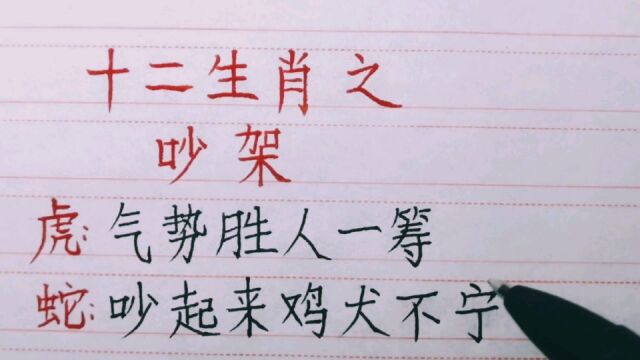 十二生肖之
吵架
虎:气势胜人一筹
蛇:吵起来鸡犬不宁